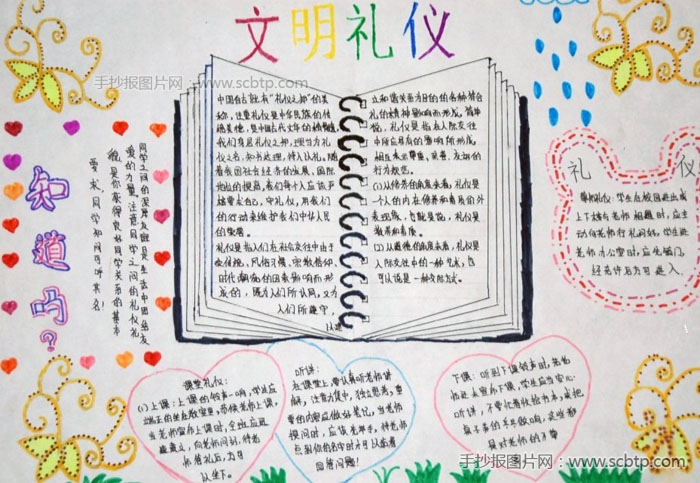 文明礼仪
手抄报图片网：www.scbtp.com
中国自古就有“礼仪之邦”的美
称，注重礼仪是中华民族的传
统美德
我们身居礼仪之邦，理应为礼
仪之名，知书达理，待人以礼。随
着我国社会经济的发展，国际
地位的提高，我们每个人应该尹
守礼仪，用我们
的行动来维护我们中华人民
的
礼仪是指人们在社会交往中由于
受传统、风俗习惯、宗教信仰、
时代潮流的因素影响而形
成的，既为人们所认同，又为
人们所遵守，
以建
立和谐关系为目的的各种符合
礼的精神
礼仪是指在人际交往
相互表示尊重、亲善、友好的
行为规范。
(1)从修养的角度来看，礼仪是
一个人的内在修养和素质的外
表现，也就是说，礼仪是
教养和素养。
(2)从道德的角度来看，礼仪是
人际交往中的一种艺术，也
可以说是一种交际方式。
知道吗？
同学之间的深厚友谊是生活中团结友
爱的力量，注意同学之间的礼仪礼
貌是你获得良好同学关系的基本
要求，同学知间可呼其名！
礼仪
尊师礼仪：学生在校园进出或
上下楼与老师相遇时，应主
动向老师行礼问好，学生进
老师办公室时，应先敲门，
经允许后方可进入。
课堂礼仪：
(1)上课：上课的铃声一响，学生应
端正的坐在教室里，等候老师上课，
当老师宣布上课时，全班应迅
速起立，向老师问好，待老
师答礼后，方可
以坐下。
听讲：
在课堂上，要认真听老师讲
解，注意力集中，独立思考，重
要的内容应做好笔记，当老师
提问时，应该先举手，待老师
点到你的名字时才可以站着
回答问题！
下课：听到下课铃声时，老
师还未宣布下课，学生应当安心
听讲，不要忙着收拾书本，或把
桌子弄的乒乓做响，这些都
是对老师的不尊
手抄报图片网：www.scbtp.com